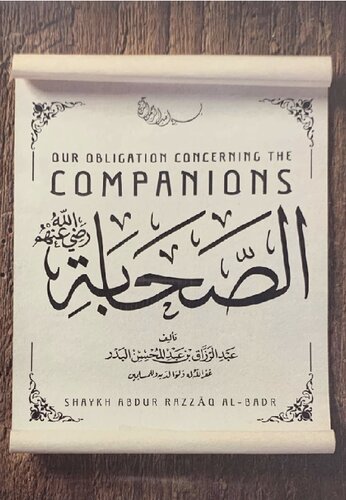 بسم الله الرحمن الرحيم
OUR OBLIGATION CONCERNING THE
COMPANIONS
الصَّحَابَةِ رَضِيَ اللهُ عَنْهُمْ
تأليف
عبد الرزاق بن عبد المحسن البدر
غفر الله له ولوالديه وللمسلمين
SHAYKH ABDUR RAZZĀQ AL-BADR